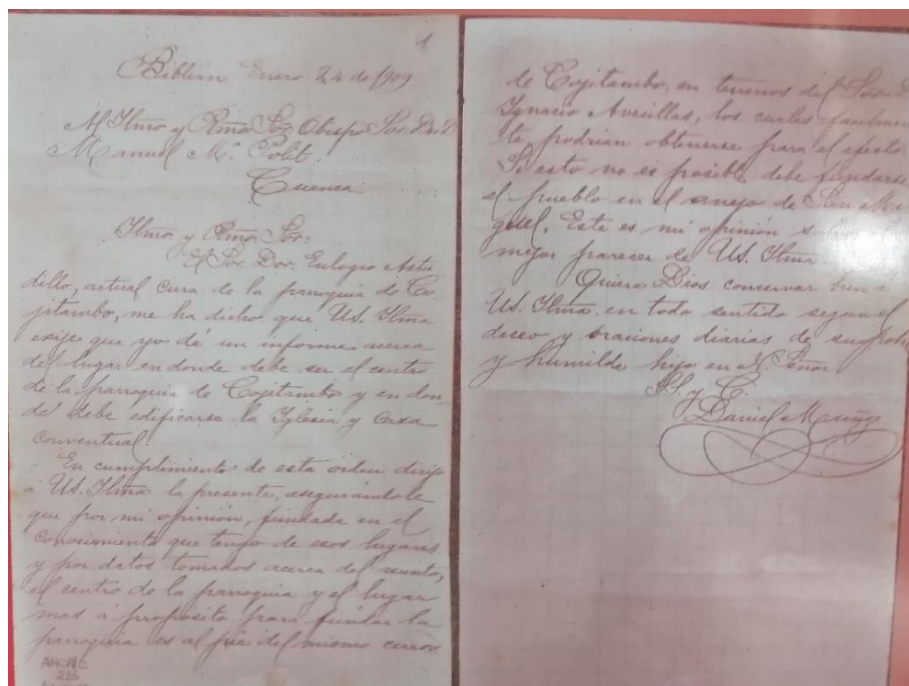 1
Biblián Enero 24 de 1909
Al Iltmo y Rmo Sor. Obispo Sor. Dor. D.
Manuel Ma. Polit.
Cuenca
Iltmo y Rmo Sor:
El Sor. Dor. Eulogio Astu
dillo, actual cura de la parroquia de Co
jitambo, me ha dicho que US. Iltma
exije que yo dé un informe acerca
del lugar en donde debe ser el centro
de la parroquia de Cojitambo y en don
de debe edificarse la Iglesia y casa
conventual.
En cumplimiento de esta orden dirijo
á US. Iltma la presente, asegurándole
que por mi opinión, fundada en el
conocimiento que tengo de esos lugares
y por datos tomados acerca del asunto,
el centro de la parroquia y el lugar
mas á propósito para fundar la
parroquia es al pié del mismo cerro
AHCA/C
226
de Cojitambo, en terrenos del Sor. D
Ignacio Avecillas, los cuales facilmen
te podrian obtenerse para el efecto
Si esto no es posible debe fundarse
el pueblo en el anejo de San Mi
guel. Este es mi opinión
mejor parecer de US. Iltma
Quiera Dios conservar bien a
US. Iltma. en todo sentido segun el
deseo y oraciones diarias de su
y humilde hijo en N. Señor
Daniel Muñoz